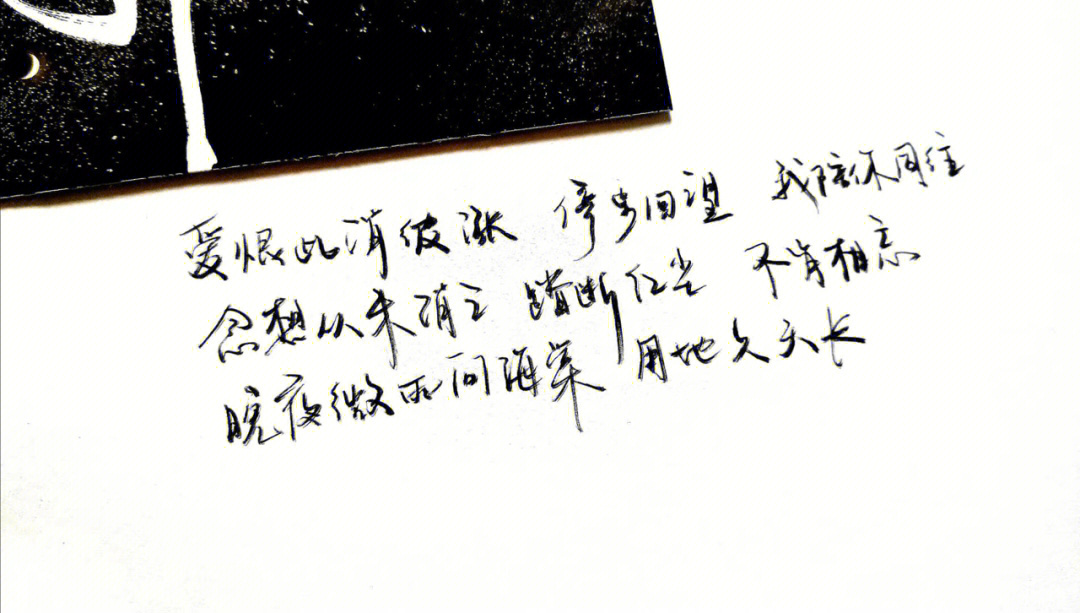 爱恨此消彼涨 停步回望 我陪你同往
念想从未消亡 踏断红尘 不肯相忘
晚夜微雨问海棠 用地久天长